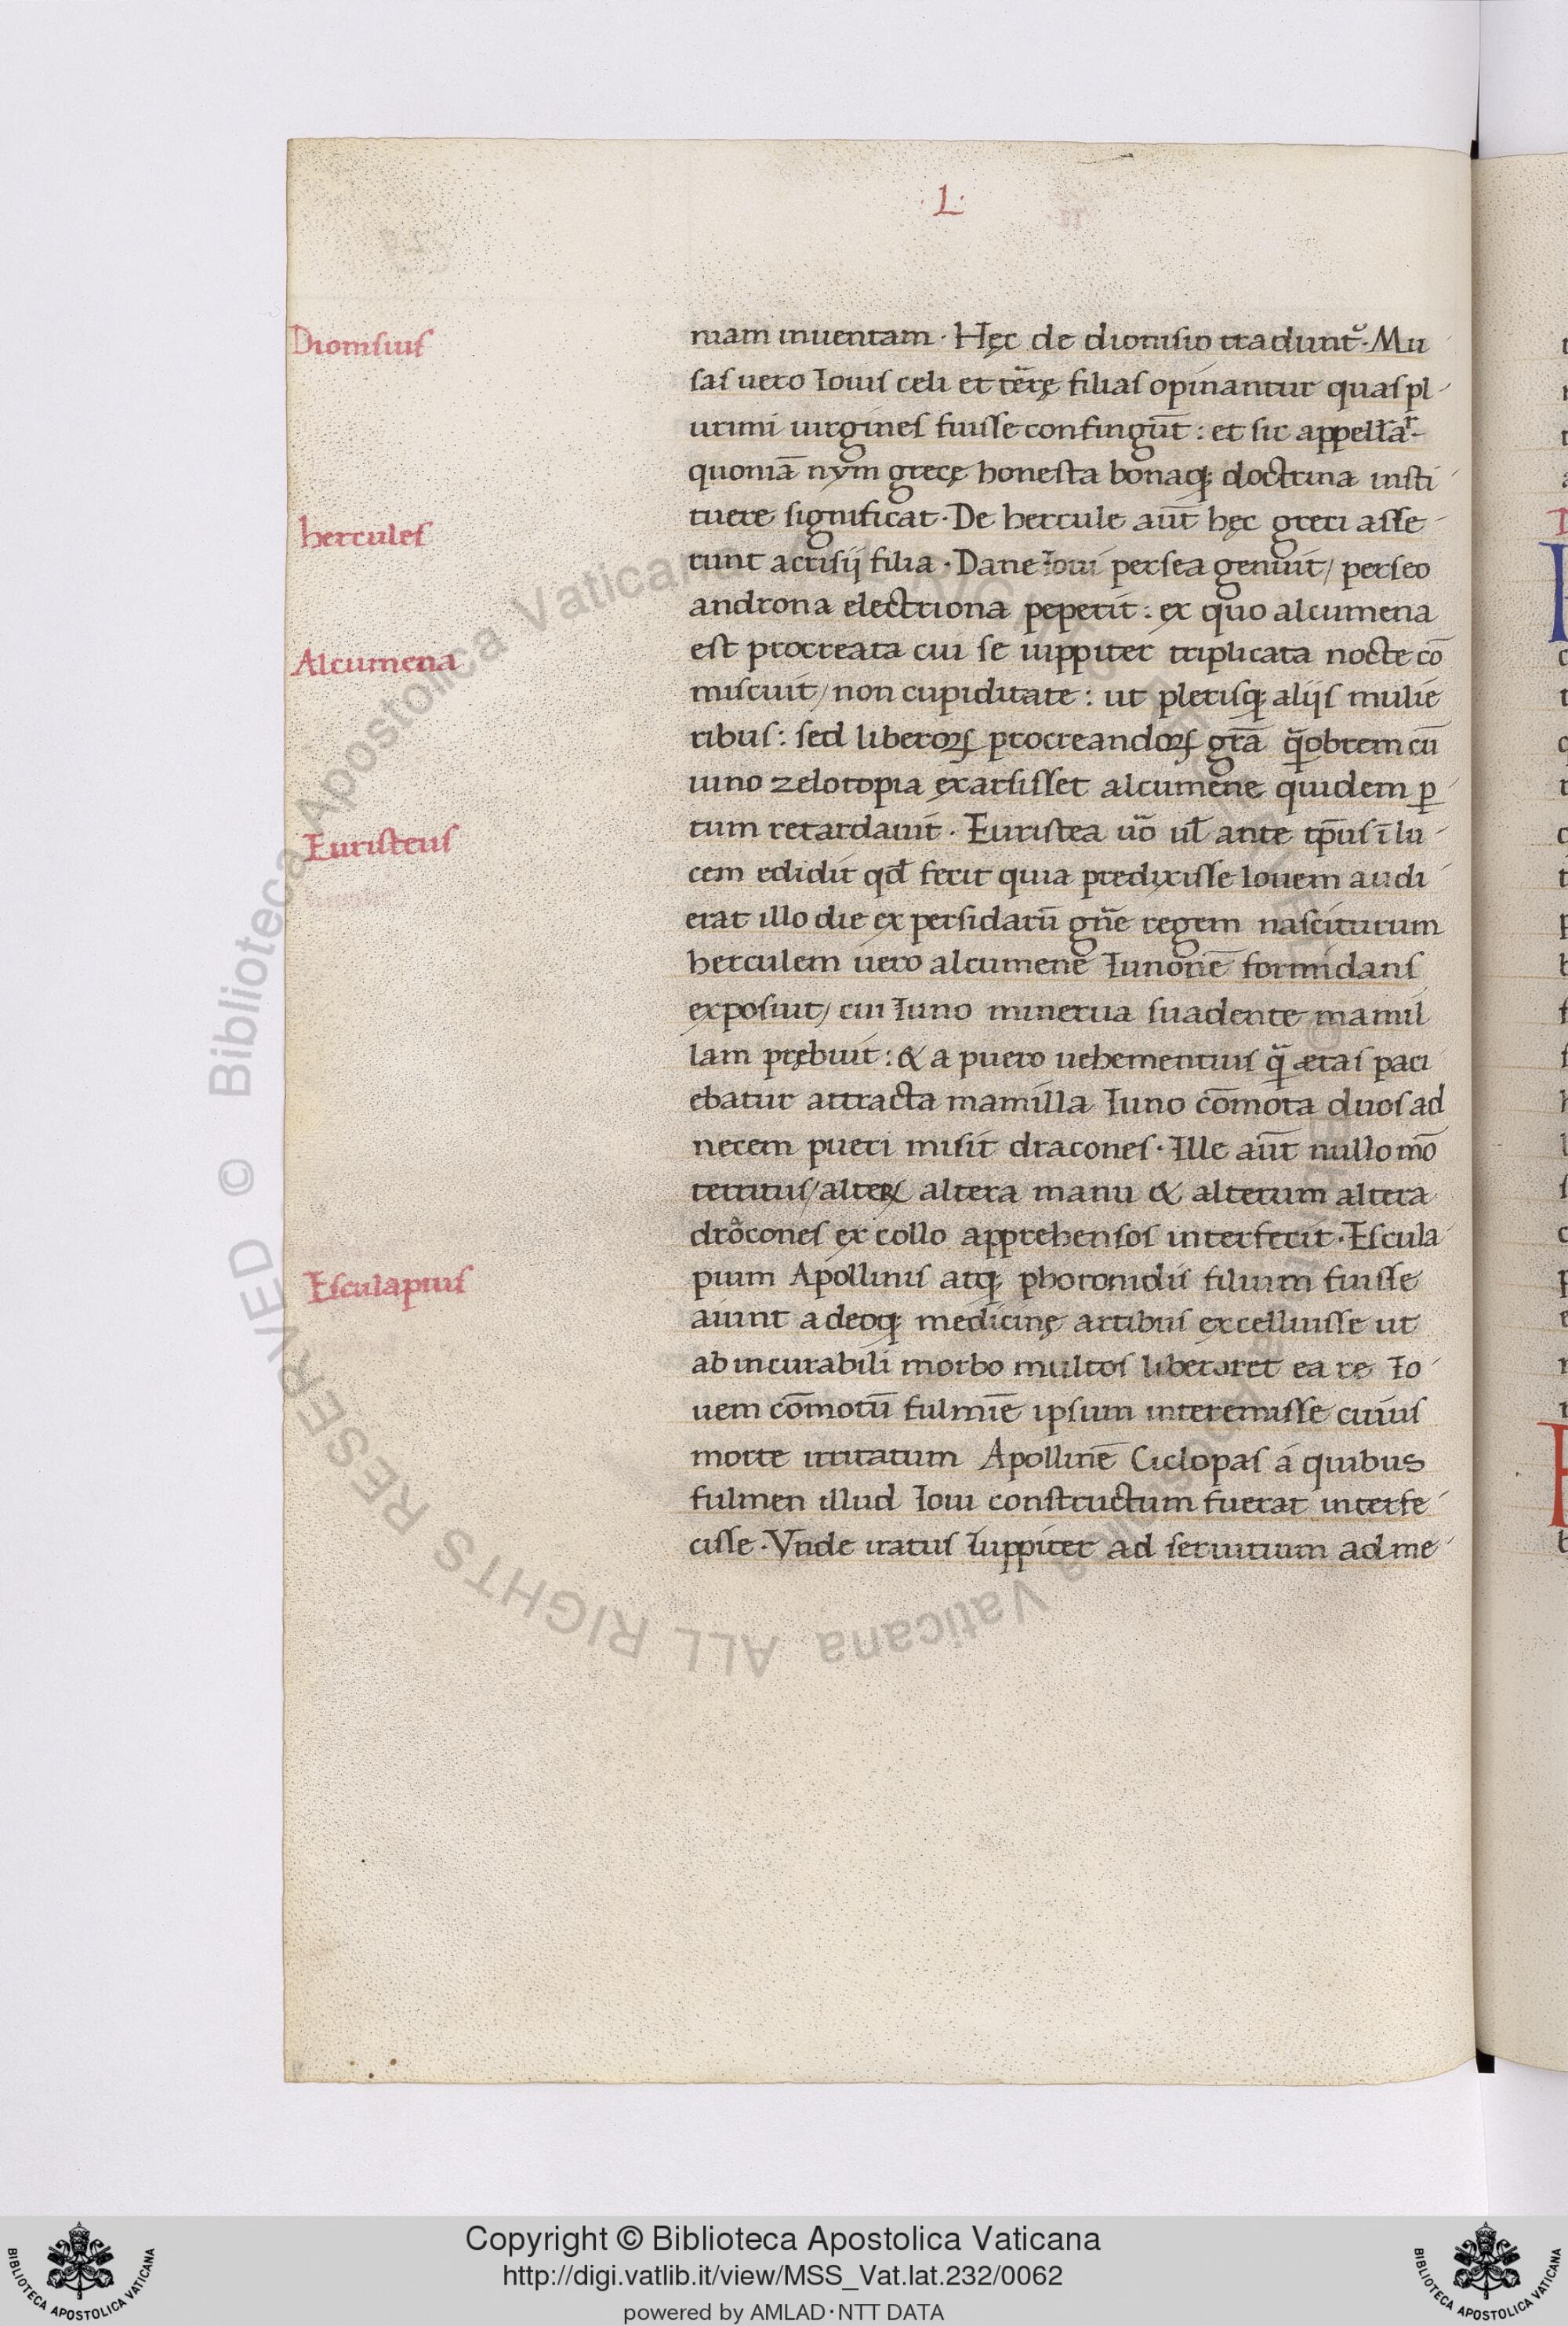 ·L·
Dionisius
niam inuentam · Hęc de dionisio tradunt᷑ · Mu
sas uero Iouis celi et terrę filias opinantur quas pl
urimi uirgines fuisse confingūt : et sic appellat᷑
quoniā nym grecę honesta bonaq; doctrina insti
hercules
tuere significat · De hercule aūt hęc greci asse
runt acrisij filia · Dane Ioui persea genuit / perseo
androna electriona peperit : ex quo alcumena
Alcumena
est procreata cui se iuppiter triplicata nocte cō
miscuit / non cupiditate : ut plerisq; alijs mulie
ribus : sed liberoꝝ procreandoꝝ grā q̄obrem cū
iuno zelotopia exarsisset alcumene quidem ꝑ
Euristeus
tum retardauit · Euristea ūo ul̄ ante tp̄us ī lu
cem edidit qđ fecit quia predixisse Iouem audi
erat illo die ex persidarū gn̄e regem nasciturum
herculem uero alcumene Iunonē formidans
exposuit / cui Iuno minerua suadente mamil
lam prębuit : & a puero uehementius q̄ ætas paci
ebatur attracta mamilla Iuno cōmota duos ad
necem pueri misit dracones · Ille aūt nullo mō
territus / alteꝝ altera manu & alterum altera
drocones ex collo apprehensos interfecit · Escula
Esculapius
pium Apollinis atq; phoronidis filium fuisse
aiunt adeoq; medicinę artibus excelluisse ut
ab incurabili morbo multos liberaret ea re Io
uem cōmotū fulmīe ipsum interemisse cuius
morte irritatum Apollinē Ciclopas á quibus
fulmen illud Ioui constructum fuerat interfe
cisse · Vnde iratus Iuppiter ad seruitium adme
© Biblioteca Apostolica Vaticana ALL RIGHTS RESERVED
Copyright © Biblioteca Apostolica Vaticana
http://digi.vatlib.it/view/MSS_Vat.lat.232/0062
powered by AMLAD·NTT DATA
BIBLIOTECA APOSTOLICA VATICANA
BIBLIOTECA APOSTOLICA VATICANA